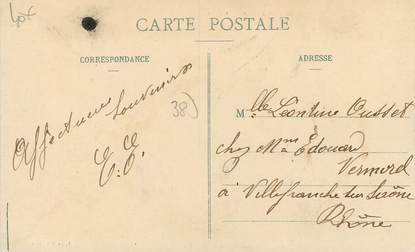 Lot
CARTE POSTALE
CORRESPONDANCE
ADRESSE
Affectueux Souvenirs
E. E.
38)
Mlle Léontine Ousset
chez Mme Edouard
Vermord
à Villefranche sur Saône
Rhône